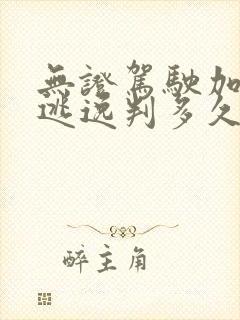 無證駕駛加
逃逸判多久
醉主角